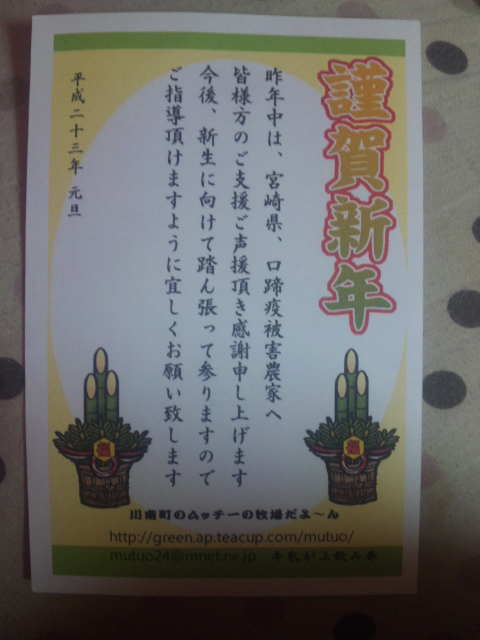 謹賀新年
昨年中は、宮崎県、口蹄疫被害農家へ
皆様方のご支援ご声援頂き感謝申し上げます
今後、新生に向けて踏ん張って参りますので
ご指導頂けますように宜しくお願い致します
平成二十三年 元旦
川南町のムッチーの牧場だよ～ん
http://green.ap.teacup.com/mutuo/
mutuo24@mnet.ne.jp